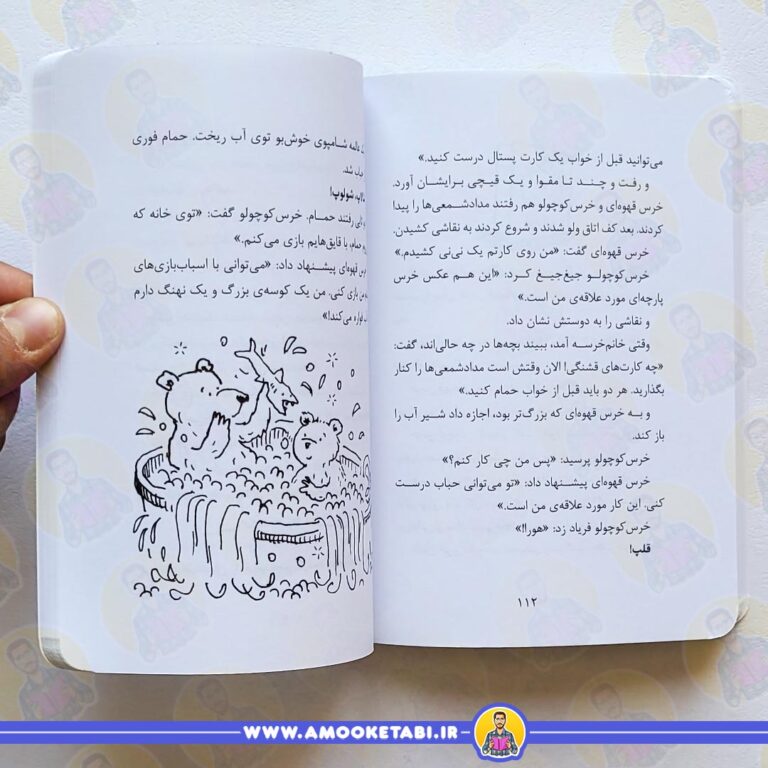 می‌توانید قبل از خواب یک کارت پستال درست کنید.»
و رفت و چند تا مقوا و یک قیچی برایشان آورد.
خرس قهوه‌ای و خرس‌کوچولو هم رفتند مدادشمعی‌ها را پیدا
کردند. بعد کف اتاق ولو شدند و شروع کردند به نقاشی کشیدن.
خرس قهوه‌ای گفت: «من روی کارتم یک نی‌نی کشیدم.»
خرس‌کوچولو جیغ‌جیغ کرد: «این هم عکس خرس
پارچه‌ای مورد علاقه‌ی من است.»
و نقاشی را به دوستش نشان داد.
وقتی خانم‌خرسه آمد، ببیند بچه‌ها در چه حالی‌اند، گفت:
«چه کارت‌های قشنگی! الان وقتش است مدادشمعی‌ها را کنار
بگذارید. هر دو باید قبل از خواب حمام کنید.»
و به خرس قهوه‌ای که بزرگ‌تر بود، اجازه داد شیر آب را
باز کند.
خرس‌کوچولو پرسید: «پس من چی کار کنم؟»
خرس قهوه‌ای پیشنهاد داد: «تو می‌توانی حباب درست
کنی. این کار مورد علاقه‌ی من است.»
خرس‌کوچولو فریاد زد: «هورا!»
قلپ!
۱۱۲
عالمه شامپوی خوش‌بو توی آب ریخت. حمام فوری
حباب شد.
شولوپ!
رفتند حمام. خرس‌کوچولو گفت: «توی خانه که
حمام، با قایق‌هایم بازی می‌کنم.»
قهوه‌ای پیشنهاد داد: «می‌توانی با اسباب‌بازی‌های
من بازی کنی. من یک کوسه‌ی بزرگ و یک نهنگ دارم
می‌کند!»
WWW.AMOOKETABI.IR